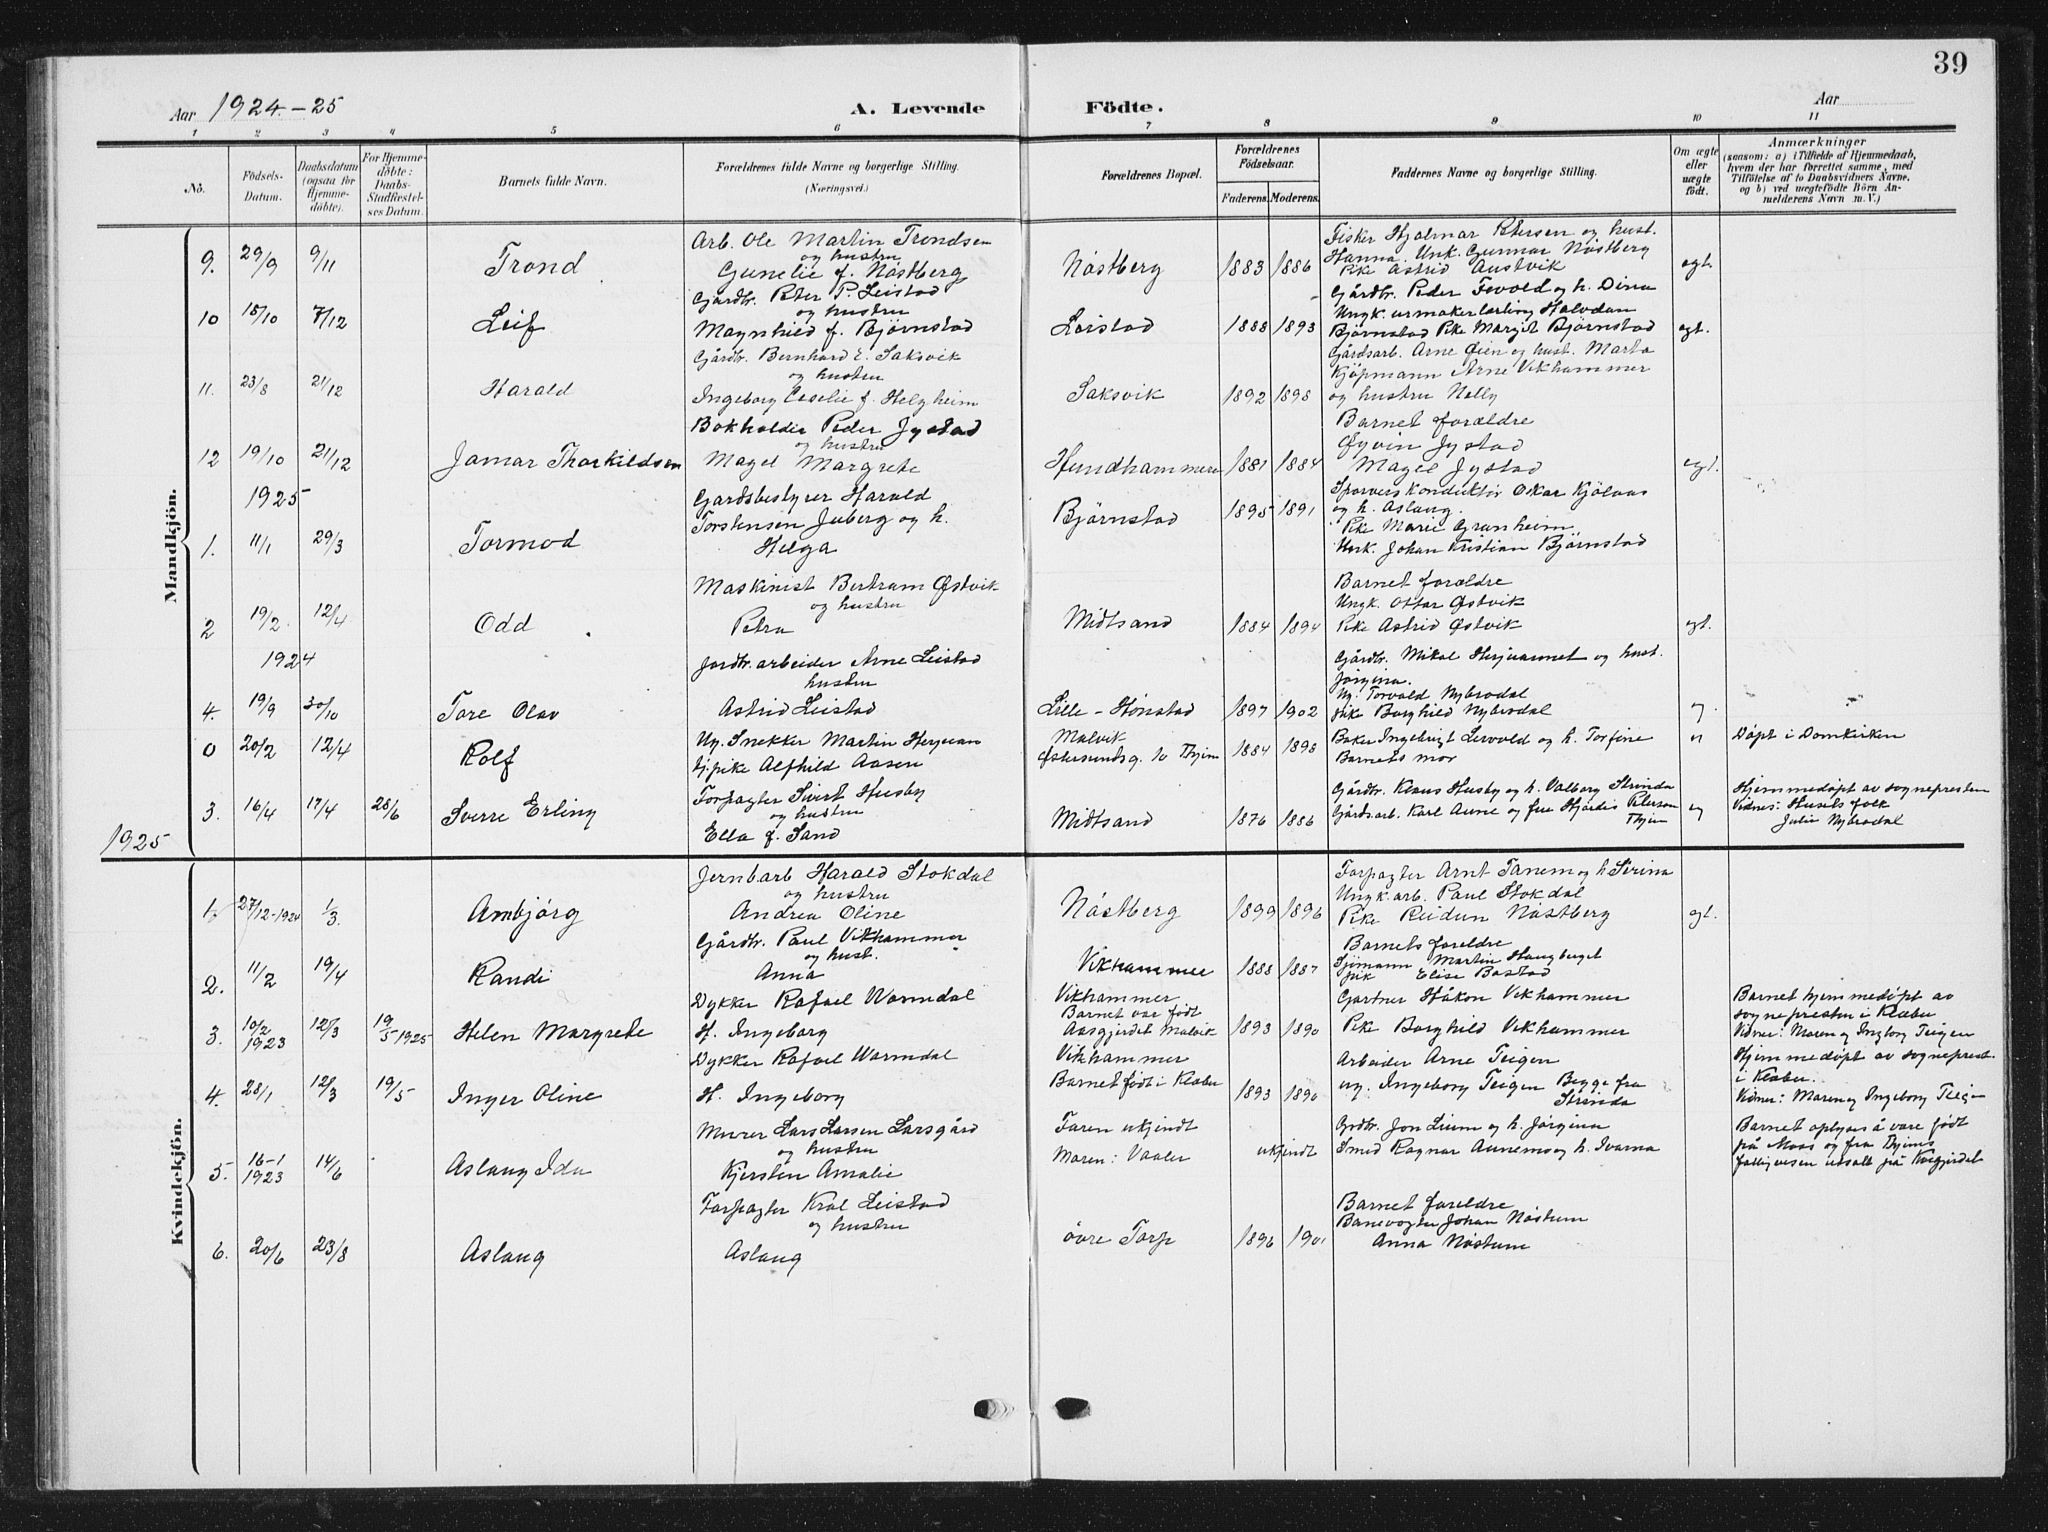 39
Aar 1924-25 A. Levende Födte. Aar
1 2 3 4 5 6 7 8 9 10 11
No.
Födsels-Datum.
Daabsdatum (ogsaa for Hjemme-döbte).
For Hjemme-döbte: Daabs-Stadfæstel-ses Datum.
Barnets fulde Navn.
Forældrenes fulde Navne og borgerlige Stilling.
(Næringsvei.)
Forældrenes Bopæl.
Forældrenes Födselsaar.
Faderens. Moderens.
Faddernes Navne og borgerlige Stilling.
Om ægte eller uægte födt.
Anmærkninger
(saasom: a) i Tilfælde af Hjemmedaab,
hvem der har forrettet samme, med
Tilföielse af to Daabsvidners Navne,
og b) ved uægtefödte Börn An-
melderens Navn m. V.)
Mandkjön.
Arb. Ole Martin Trondsen
og hustru
9. 29/9 9/11 Trond Gunelie f. Nåstberg Nåstberg 1883 1886
Fisker Hjalmar Petersen og hust.
Hanna. Unk. Gunnar Nåstberg
Pike Astrid Austvik egt.
Gårdbr. Peter P. Leistad
og hustru
10 15/10 7/12 Leif Magnhild f. Bjørnstad Leistad 1888 1893
Gårdbr. Peder Fevold og h. Dina
Ungk. urmakerlærling Halvdan
Bjørnstad Pike Margit Bjørnstad egt.
Gårdbr. Bernhard E. Saksvik
og hustru
11. 23/8 21/12 Harald Ingeborg Ceselie f. Helgheim Saksvik 1892 1898
Gårdsarb. Arne Øien og hust. Marta
Kjøpmann Arne Vikhammer
og hustru Nelly
Bokholder Peder Jystad
og hustru
12 19/10 21/12 Jomar Thorkildsen Magel Margrete Hundhammeren 1881 1884
Barnet forældre
Øyvin Jystad
Magel Jystad egt.
1925
Gardsbestyrer Harald
Torstensen Juberg og h.
1. 11/1 29/3 Tormod Helga Bjørnstad 1895 1891
Sporveiskonduktør Oskar Kjölaas
og h. Aslaug.
Pike Marie Granheim
Unk. Johan Kristian Bjørnstad
Maskinist Bertram Østvik
og hustru
2 19/2 12/4 Odd Petra Midtsand 1884 1894
Barnet forældre
Ungk. Ottar Østvik
Pike Astrid Østvik egt.
1924
Jordbr. arbeider Arne Leistad
hustru
4. 19/9 30/10 Tore Olav Astrid Leistad Lille-Hønstad 1897 1902
Gårdbr. Mikal Herjuaunet og hust.
Jørgina.
Ug. Torvald Nybrodal
Pike Borghild Nybrodal
0 20/2 12/4 Rolf Ug. Snekker Martin Herjuan
tj.pike Alfhild Aasen
Malvik
Østersundsg. 10 Thjem 1884 1898
Baker Ingebrigt Leivold og h. Torfine
Barnets mor u Døpt i Domkirken
3. 16/4 17/4 28/6 Sverre Erling Forpagter Sivert Husby
og hustru
Ella f. Sand Midtsand 1876 1886
Gårdbr. Klaus Husby og h. Valborg Strinda
Gårdsarb. Karl Aune og frue Hjørdis Peterson
Thjem
Hjemmedøpt av sognepresten
Vidnes: Husets folk
Julie Nybrodal
1925
Kvindekjön.
Jernbarb Harald Stokdal
og hustru
1. 27/12-1924 1/3. Ambjørg Andrea Oline Nåstberg 1899 1896
Forpagter Arnt Tanem og h Serina
Ungk. arb. Paul Stokdal
Pike Reidun Nåstberg egt.
Gårdbr. Paul Vikhammer
og hust.
2. 11/2 19/4 Randi Anna Vikhammer 1888 1887
Barnets foreldre
Sjömann Martin Haugberget
pik Elise Bostad
Dykker Rafael Warmdal
3. 10/2 1923 12/3 19/5 1925 Helen Margrete H. Ingeborg
Vikhammer
Barnet var født
Aasgjerdet Malvik 1893 1890
Gartner Håkon Vikhammer
Pike Borghild Vikhammer
Barnet hjemmedøpt av
sognepresten i Klæbu
Vidner: Maren og Ingborg Teigen
Dykker Rafael Warmdal
4. 28/1 12/3 19/5 Inger Oline H. Ingeborg
Vikhammer
Barnet født i Klæbu 1893 1890
Arbeider Arne Teigen
ug. Ingeborg Teigen Begge fra
Strinda
Hjemmedøpt av sogneprest.
i Klæbu.
Vidner: Maren og Ingeborg Teigen
Murer Lars Larsen Larsgård
og hustru
5. 16-1 1923 14/6 Aslaug Ida Kjersten Amalie
Faren ukjendt
Moren: Vaaler ukjendt
Grdbr. Jon Lium og h. Jørgina
Smed Ragnar Aunemo og h. Ivarna
Barnet oplyses å være født
på Moss og fra Thjems
fattigvesen utsatt på Kvegjerdet
Forpagter Kral Leistad
og hustru
6. 20/6 23/8 Aslaug Aslaug övre Torp 1896 1901
Barnet foreldre
Banevogter Johan Nåstum
Anna Nåstum